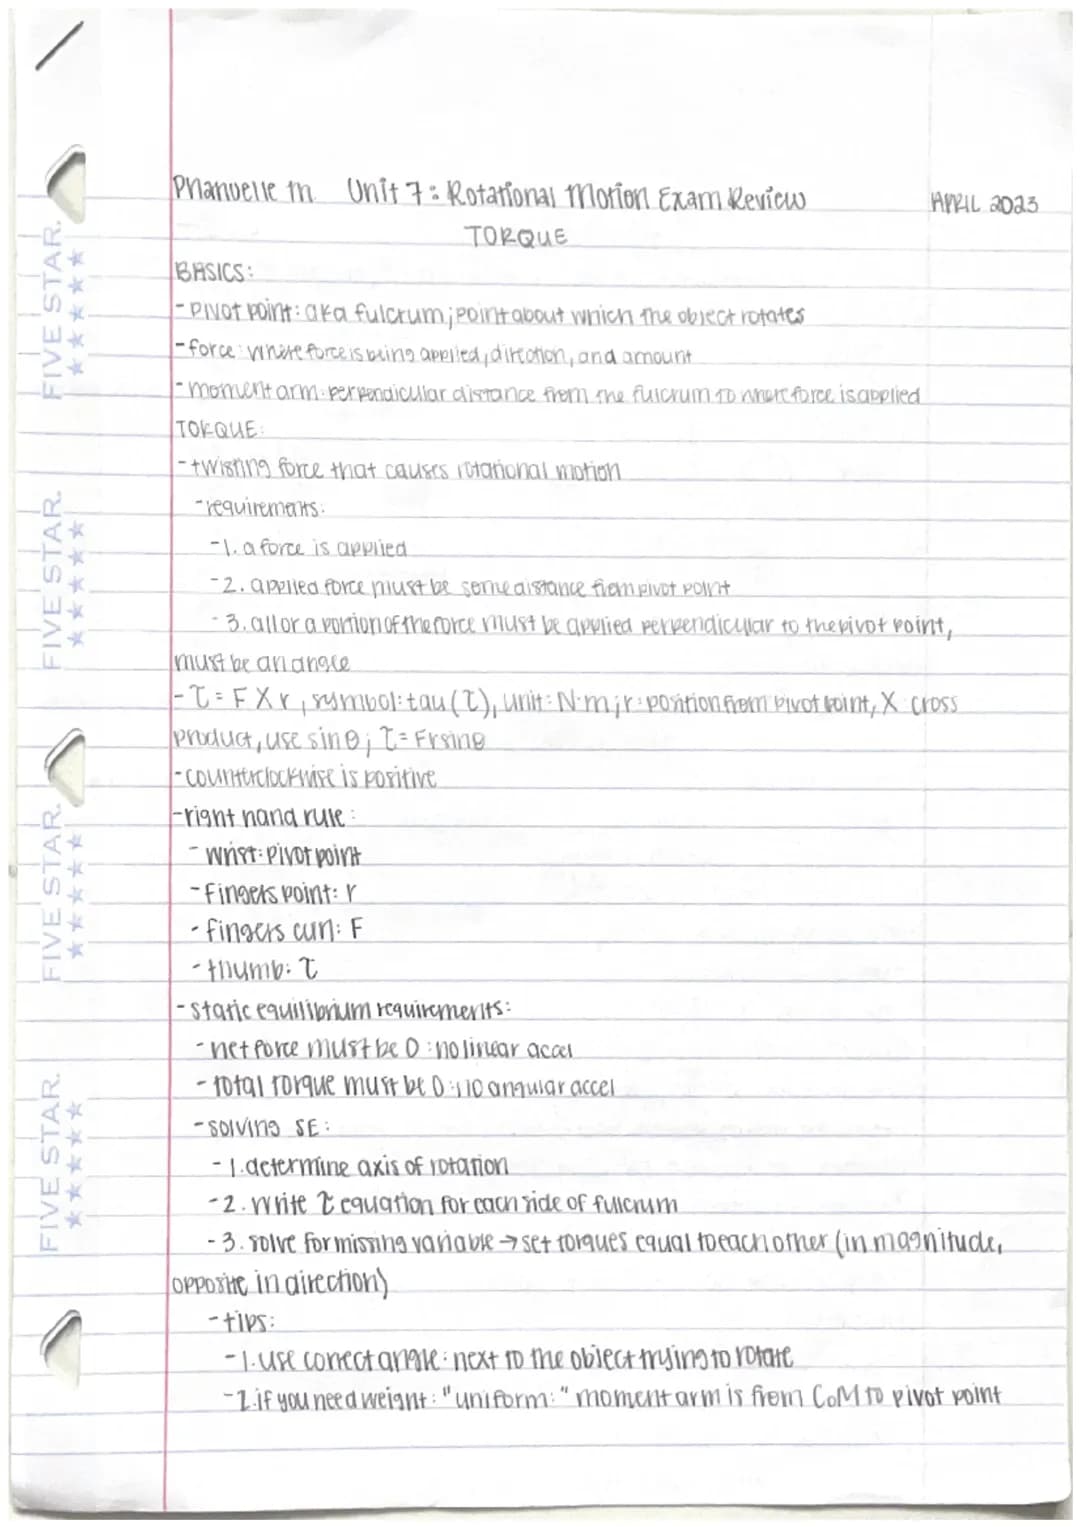 Phanuelle M. Unit 7: Rotational Motion Exam Review APRIL 2023
TORQUE
BASICS:
-pivot point: aka fulcrum; point about which the object rotates
-force: where force is being applied, direction, and amount
-moment arm: perpendicular distance from the fulcrum to where force is applied
TORQUE:
-twisting force that causes rotational motion
-requirements:
-1. a force is applied
-2. applied force must be some distance from pivot point
-3. all or a portion of the force must be applied perpendicular to the pivot point,
must be an angle
-τ = F X r, symbol: tau (τ), unit: N·m; r: position from pivot point, X: cross
product, use sinθ; τ = Frsinθ
-counterclockwise is positive
-right hand rule:
-wrist: pivot point
-fingers point: r
-fingers curl: F
-thumb: τ
-static equilibrium requirements:
-net force must be 0: no linear accel
-total torque must be 0: no angular accel
-solving SE:
-1. determine axis of rotation
-2. write τ equation for each side of fulcrum
-3. solve for missing variable → set torques equal to each other (in magnitude,
opposite in direction)
-tips:
-1. use correct angle: next to the object trying to rotate
-2. if you need weight: "uniform:" moment arm is from CoM to pivot point
FIVE STAR.
FIVE STAR.
FIVE STAR.
FIVE STAR.